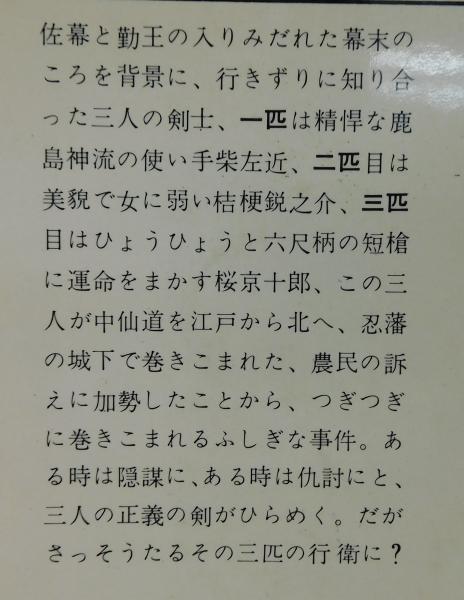 佐幕と勤王の入りみだれた幕末の
ころを背景に、行きずりに知り合
った三人の剣士、一匹は精悍な鹿
島神流の使い手柴左近、二匹目は
美貌で女に弱い桔梗鋭之介、三匹
目はひょうひょうと六尺柄の短槍
に運命をまかす桜京十郎、この三
人が中仙道を江戸から北へ、忍藩
の城下で巻きこまれた、農民の訴
えに加勢したことから、つぎつぎ
に巻きこまれるふしぎな事件。あ
る時は隠謀に、ある時は仇討にと、
三人の正義の剣がひらめく。だが
さっそうたるその三匹の行衛に?